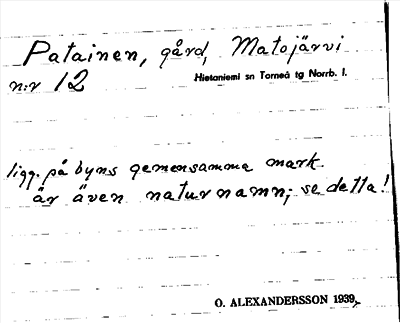 Patainen, gård, Matojärvi
n:r 12
Hietaniemi sn Torneå tg Norrb. l.
ligg. på byns gemensamma mark.
är även naturnamn; se detta!
O. ALEXANDERSSON 1939.